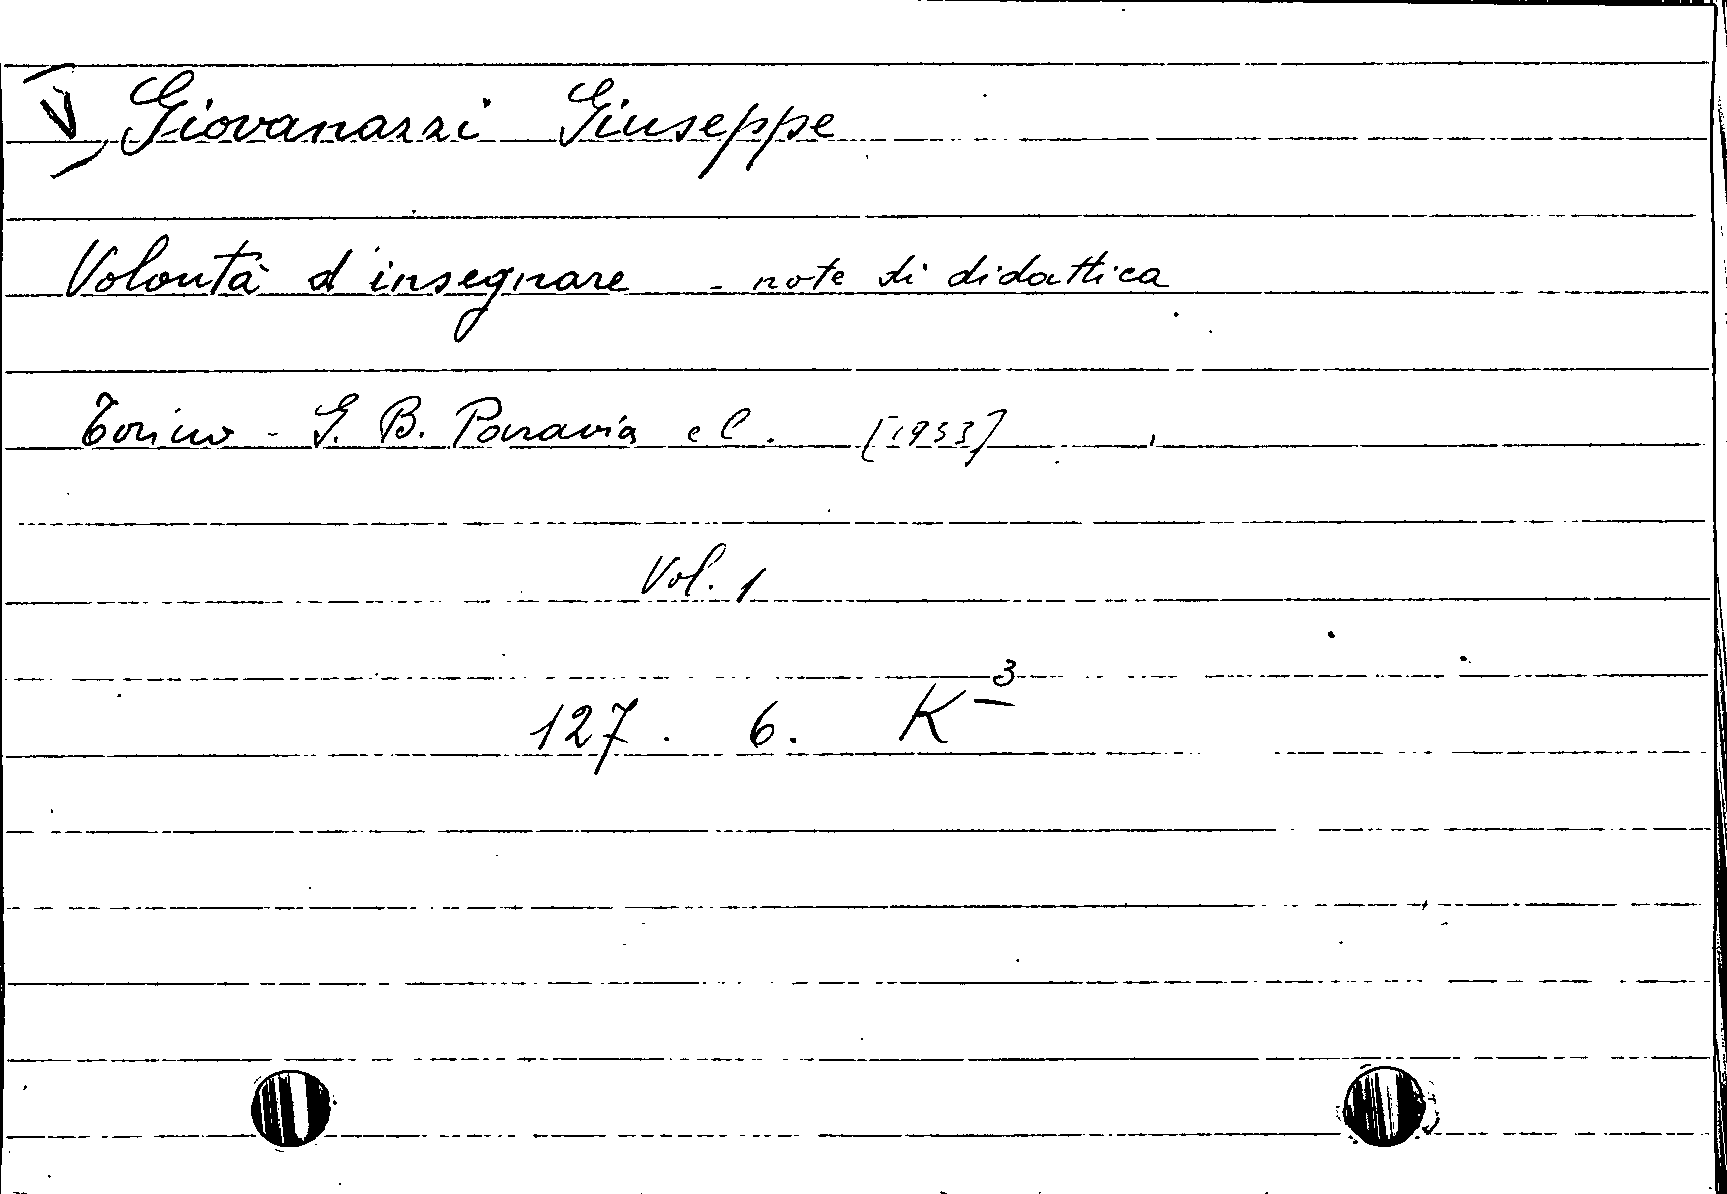 V, Giovanazzi Giuseppe
Volontà d'insegnare - note di didattica
Torino - G. B. Paravia e C. [1953]
Vol. 1
127. 6. K-3